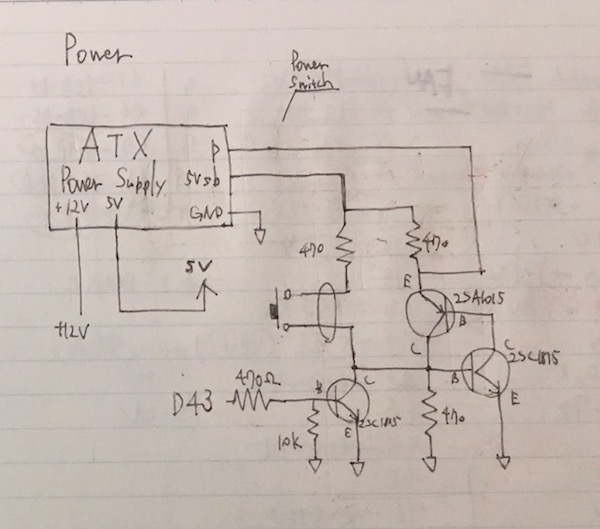 Power
Power
Switch
ATX
Power Supply
P
5Vsb
+12V 5V
GND
5V
470
470
E
2SA1015
B
C
+12V
C
2SC1815
B
E
D43
470Ω
B
C
E
2SC1815
10K
470